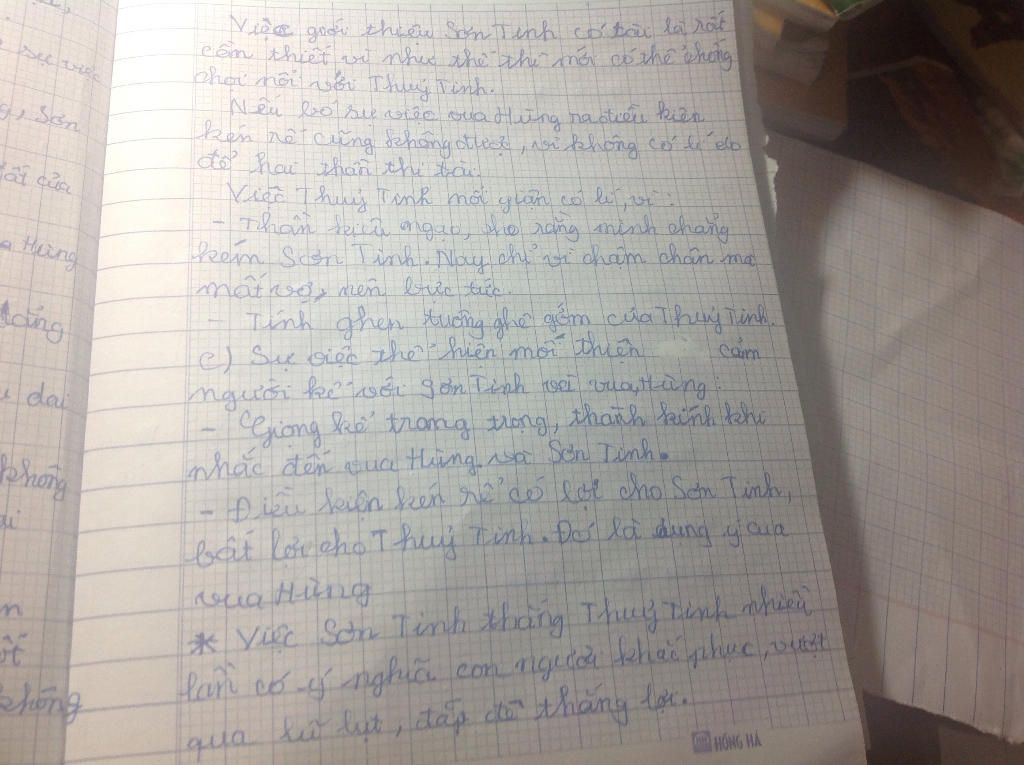 Việc giới thiệu Sơn Tinh có tài là rất
cần thiết vì như thế thì mới có thể chống
chọi nổi với Thuỷ Tinh.
Nếu bỏ sự việc vua Hùng ra điều kiện
kén rể cũng không được, vì không có lí do
để hai thần thi tài.
Việc Thuỷ Tinh nổi giận có lí, vì:
- Thần kiêu ngạo, cho rằng mình chẳng
kém Sơn Tinh. Nay chỉ vì chậm chân mà
mất vợ, nên bực tức.
- Tính ghen tuông ghê gớm của Thuỷ Tinh.
c) Sự việc thể hiện mối thiện cảm
người kể với Sơn Tinh và vua Hùng:
- Giọng kể trang trọng, thành kính khi
nhắc đến vua Hùng và Sơn Tinh.
- Điều kiện kén rể có lợi cho Sơn Tinh,
bất lợi cho Thuỷ Tinh. Đó là dụng ý của
vua Hùng
* Việc Sơn Tinh thắng Thuỷ Tinh nhiều
lần có ý nghĩa con người khắc phục, vượt
qua lũ lụt, đắp đê thắng lợi.
HỒNG HÀ
sự việc
, Sơn
của
Hùng
dai
không
không